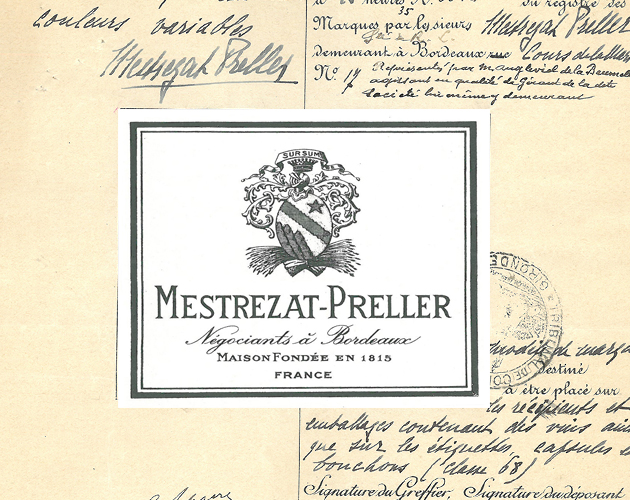 couleurs variables
Mestrezat Preller
du registre des
35
Marques par les sieurs Mestrezat Preller
demeurant à Bordeaux rue Cours de la
N° 17 Représentés par M.
agissant en qualité de Gérant de la dite
Société lui même y demeurant
SURSUM
MESTREZAT-PRELLER
Négociants à Bordeaux
MAISON FONDÉE EN 1815
FRANCE
TRIBUNAL DE CO
GIRONDE
produits de marqu
destiné
à être placé sur
les récipients et
emballages contenant des vins ains
que sur les étiquettes, capsules e
bouchons (classe 68)
Signature du Greffier, Signature du déposant